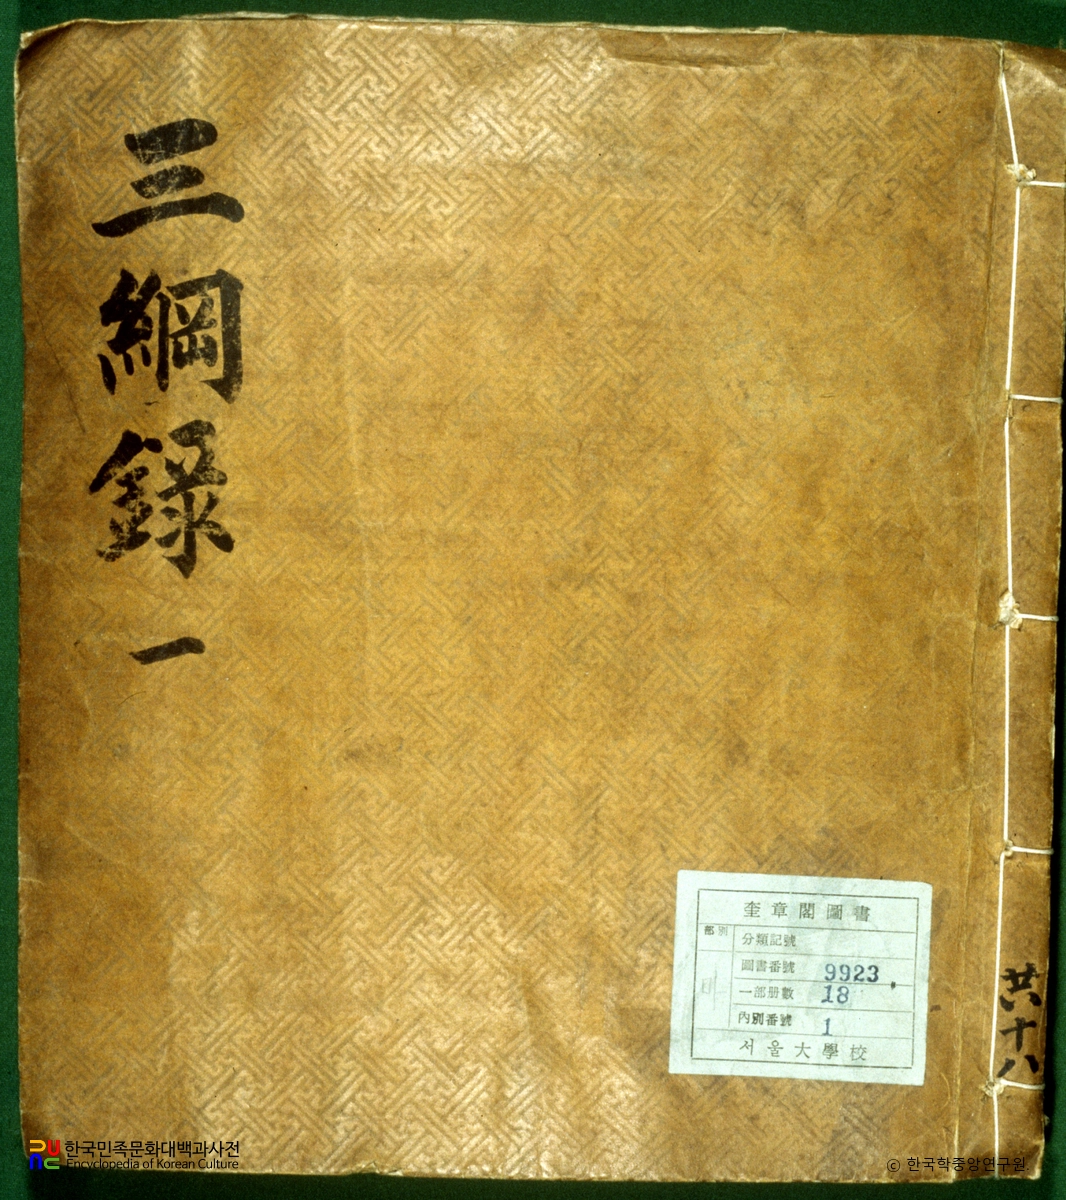 三綱錄 一
奎章閣圖書
部別
分類記號
圖書番號 9923
一部册數 18
內別番號 1
서울大學校
共十八
한국민족문화대백과사전
Encyclopedia of Korean Culture
© 한국학중앙연구원